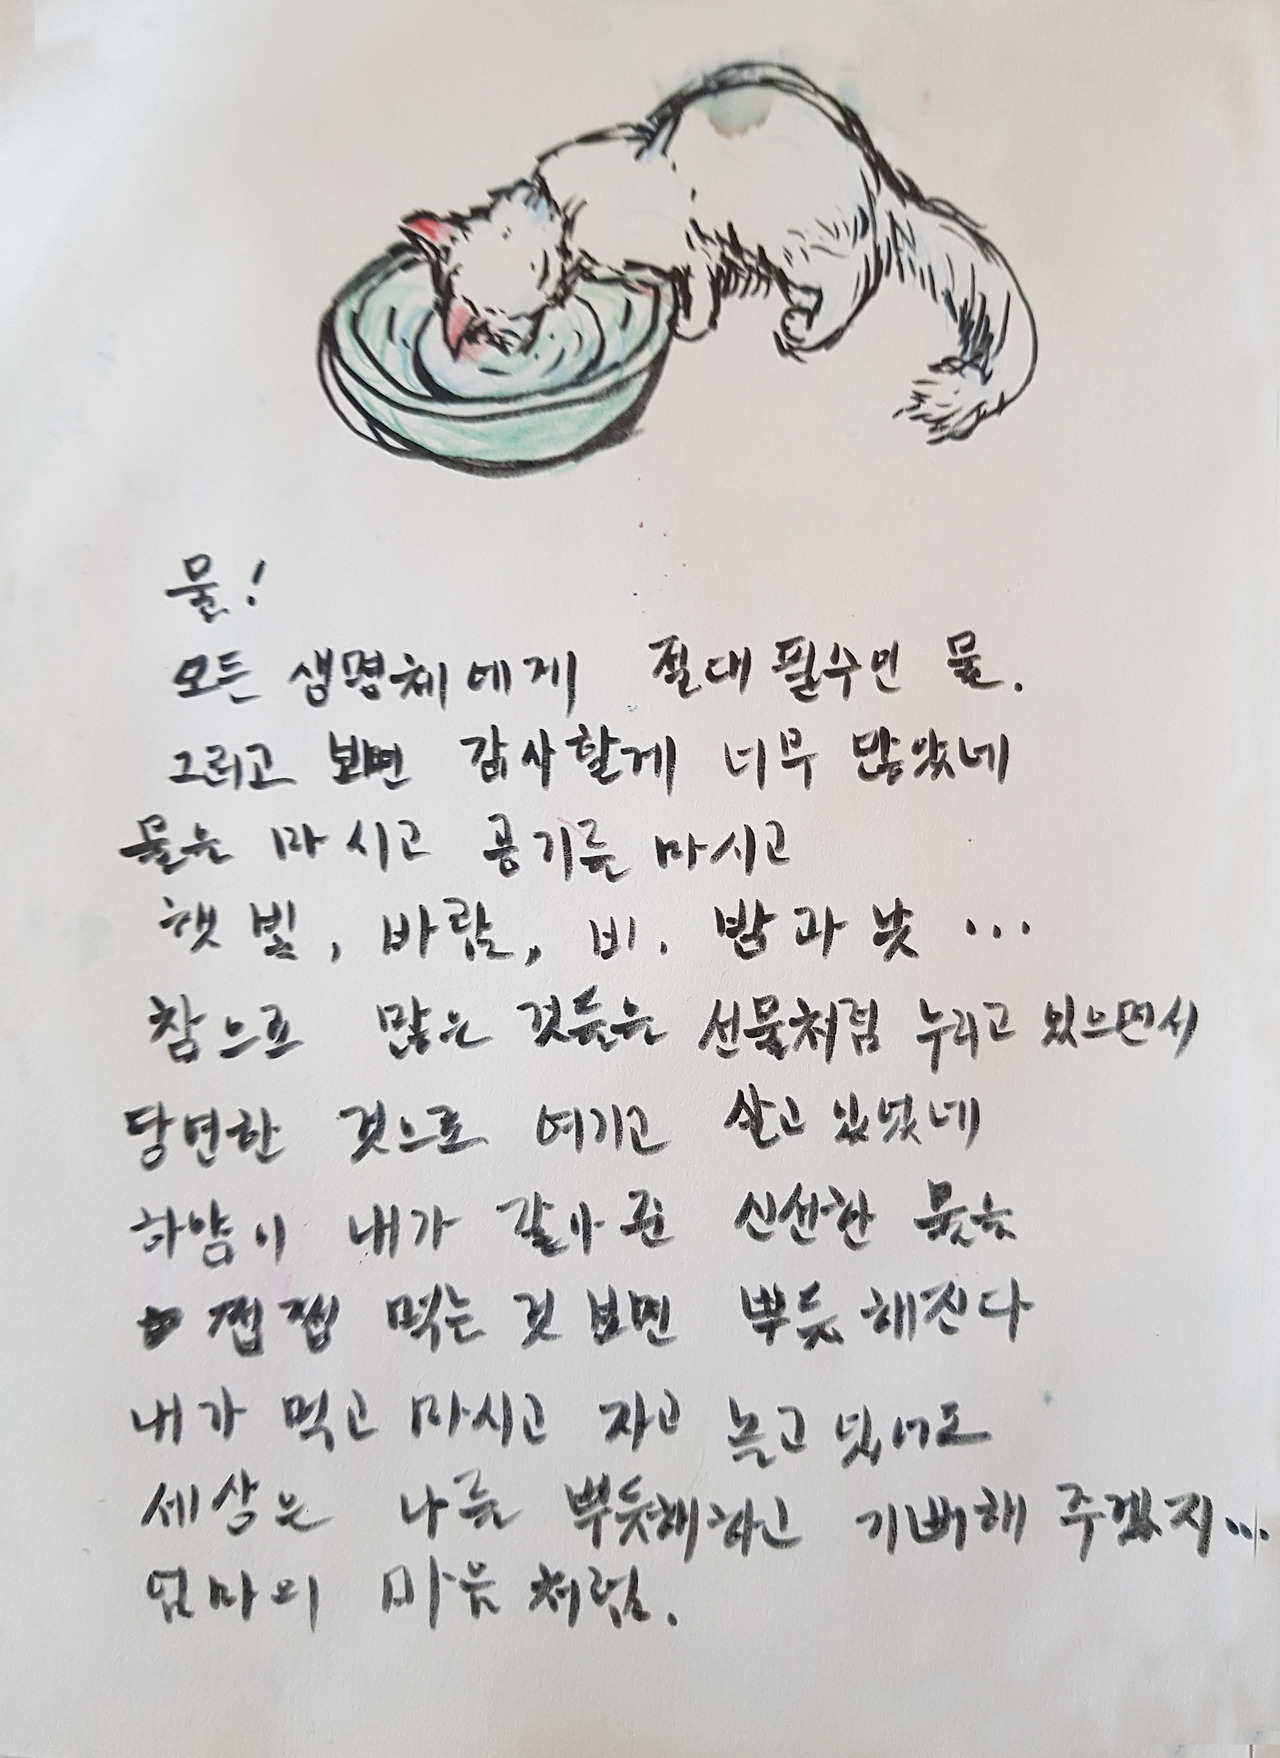 물!
모든 생명체에게 절대 필수인 물.
그리고 보면 감사할게 너무 많았네
물을 마시고 공기를 마시고
햇빛, 바람, 비. 밤과 낮 ...
참으로 많은 것들을 선물처럼 누리고 있으면서
당연한 것으로 여기고 살고 있었네
하얌이 내가 갈아준 신선한 물을
쩝쩝 먹는 것 보면 뿌듯해진다
내가 먹고 마시고 자고 놀고 있어도
세상은 나를 뿌듯해하고 기뻐해 주겠지...
엄마의 마음처럼.